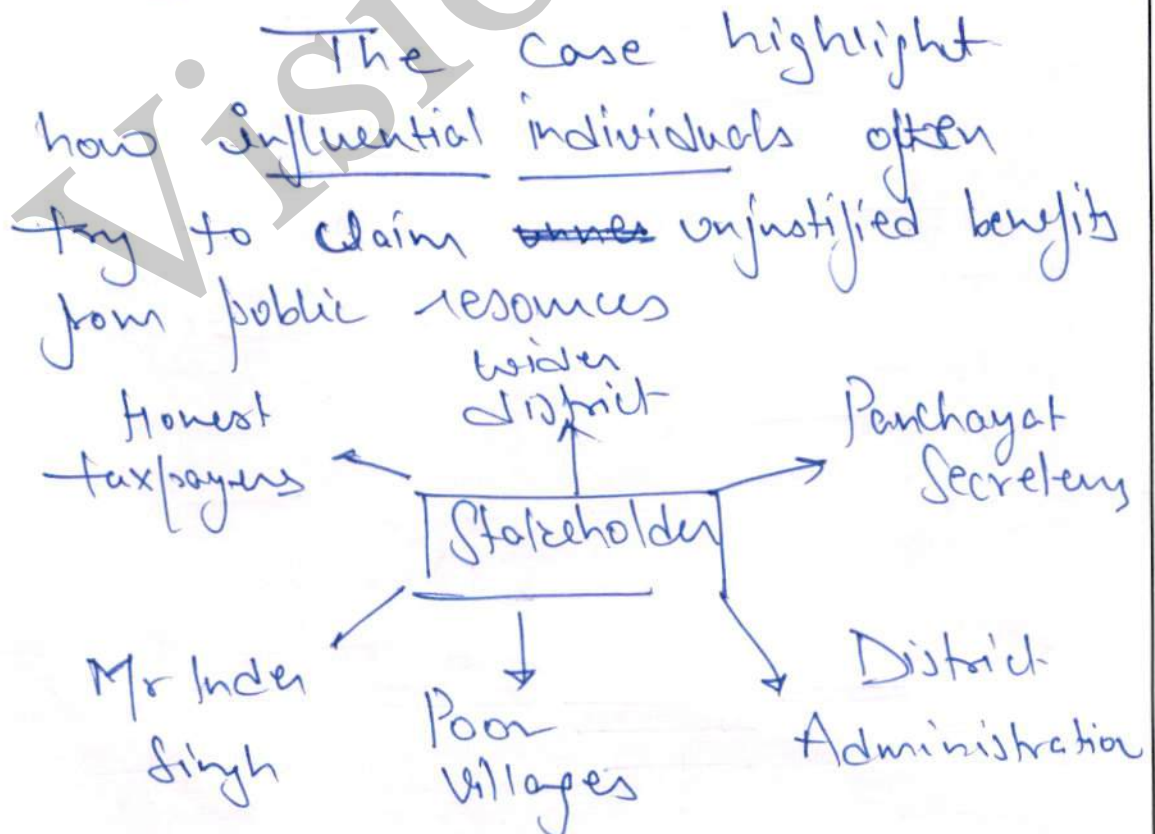 The case highlight
how influential individuals often
try to claim unjustified benefits
from public resources
wider
district
Honest
taxpayers
Panchayat
Secretary
Stakeholder
Mr Inder
Singh
Poor
Villages
District
Administration